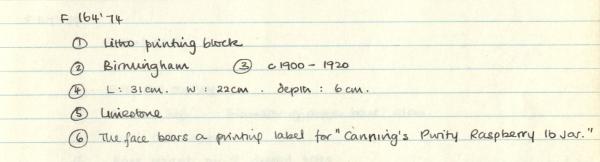 F 164'74
① Litho printing block
② Birmingham ③ c1900 - 1920
④ L : 31cm. W : 22cm. depth : 6cm.
⑤ Limestone
⑥ The face bears a printing label for "Canning's Purity Raspberry 1b Jar."